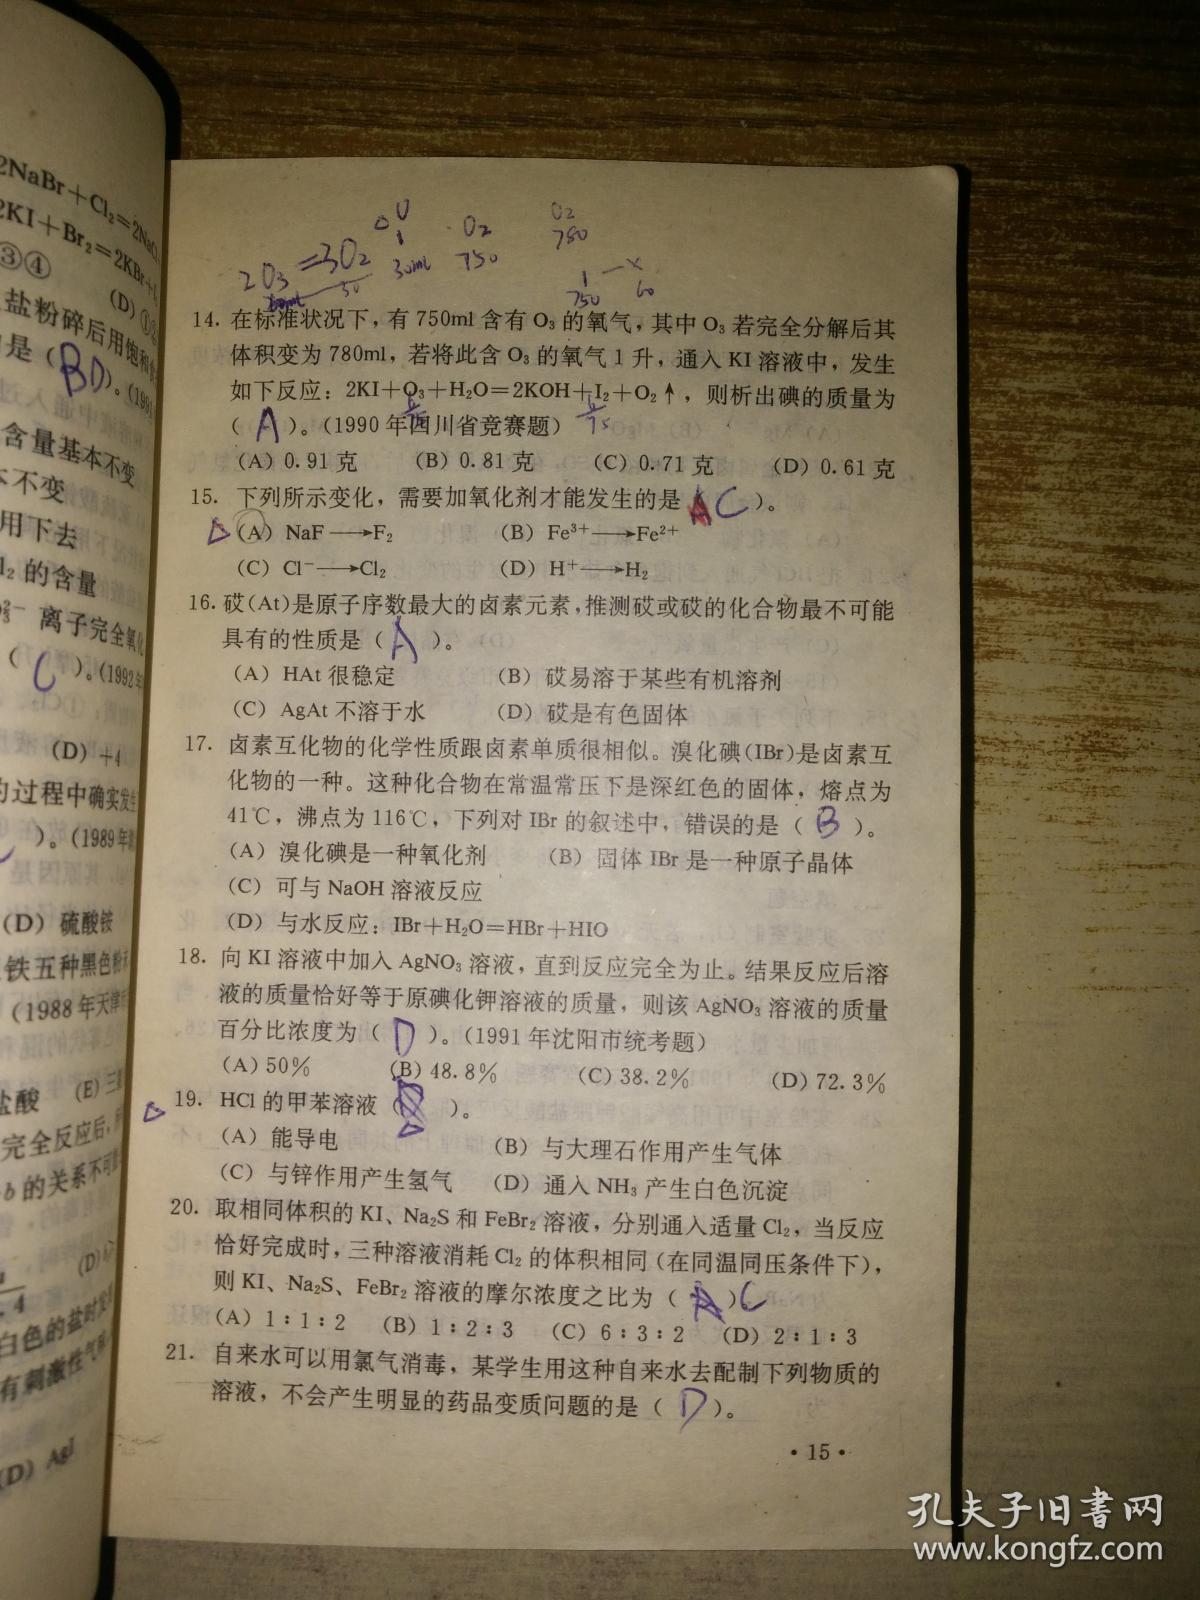 2NaBr+Cl₂=2NaCl
2KI+Br₂=2KBr+I₂
③④
(D) ①③
盐粉碎后用饱和食
是（BD）。(1991
含量基本不变
不变
用下去
l₂ 的含量
离子完全氧化
（ C ）。(1992年
(D) +4
过程中确实发生
）。(1989年
(D) 硫酸铵
铁五种黑色粉末
(1988年天津市
盐酸 (E)
完全反应后，
b 的关系不可能
白色的盐时发
有刺激性气
(D) AgI
O₂ O₂
30ml 750 780
2O₃=3O₂
1 — x
750 60
14. 在标准状况下，有 750ml 含有 O₃ 的氧气，其中 O₃ 若完全分解后其
体积变为 780ml，若将此含 O₃ 的氧气 1 升，通入 KI 溶液中，发生
如下反应：2KI+O₃+H₂O=2KOH+I₂+O₂↑，则析出碘的质量为
（ A ）。(1990 年四川省竞赛题)
(A) 0.91 克 (B) 0.81 克 (C) 0.71 克 (D) 0.61 克
15. 下列所示变化，需要加氧化剂才能发生的是（AC）。
(A) NaF⟶F₂ (B) Fe³⁺⟶Fe²⁺
(C) Cl⁻⟶Cl₂ (D) H⁺⟶H₂
16. 砹(At)是原子序数最大的卤素元素，推测砹或砹的化合物最不可能
具有的性质是（ A ）。
(A) HAt 很稳定 (B) 砹易溶于某些有机溶剂
(C) AgAt 不溶于水 (D) 砹是有色固体
17. 卤素互化物的化学性质跟卤素单质很相似。溴化碘(IBr)是卤素互
化物的一种。这种化合物在常温常压下是深红色的固体，熔点为
41℃，沸点为 116℃，下列对 IBr 的叙述中，错误的是（ B ）。
(A) 溴化碘是一种氧化剂 (B) 固体 IBr 是一种原子晶体
(C) 可与 NaOH 溶液反应
(D) 与水反应：IBr+H₂O=HBr+HIO
18. 向 KI 溶液中加入 AgNO₃ 溶液，直到反应完全为止。结果反应后溶
液的质量恰好等于原碘化钾溶液的质量，则该 AgNO₃ 溶液的质量
百分比浓度为（ D ）。(1991 年沈阳市统考题)
(A) 50% (B) 48.8% (C) 38.2% (D) 72.3%
19. HCl 的甲苯溶液（ ）。
(A) 能导电 (B) 与大理石作用产生气体
(C) 与锌作用产生氢气 (D) 通入 NH₃ 产生白色沉淀
20. 取相同体积的 KI、Na₂S 和 FeBr₂ 溶液，分别通入适量 Cl₂，当反应
恰好完成时，三种溶液消耗 Cl₂ 的体积相同(在同温同压条件下)，
则 KI、Na₂S、FeBr₂ 溶液的摩尔浓度之比为（ A ）C
(A) 1∶1∶2 (B) 1∶2∶3 (C) 6∶3∶2 (D) 2∶1∶3
21. 自来水可以用氯气消毒，某学生用这种自来水去配制下列物质的
溶液，不会产生明显的药品变质问题的是（ D ）。
·15·
孔夫子旧书网
www.kongfz.com